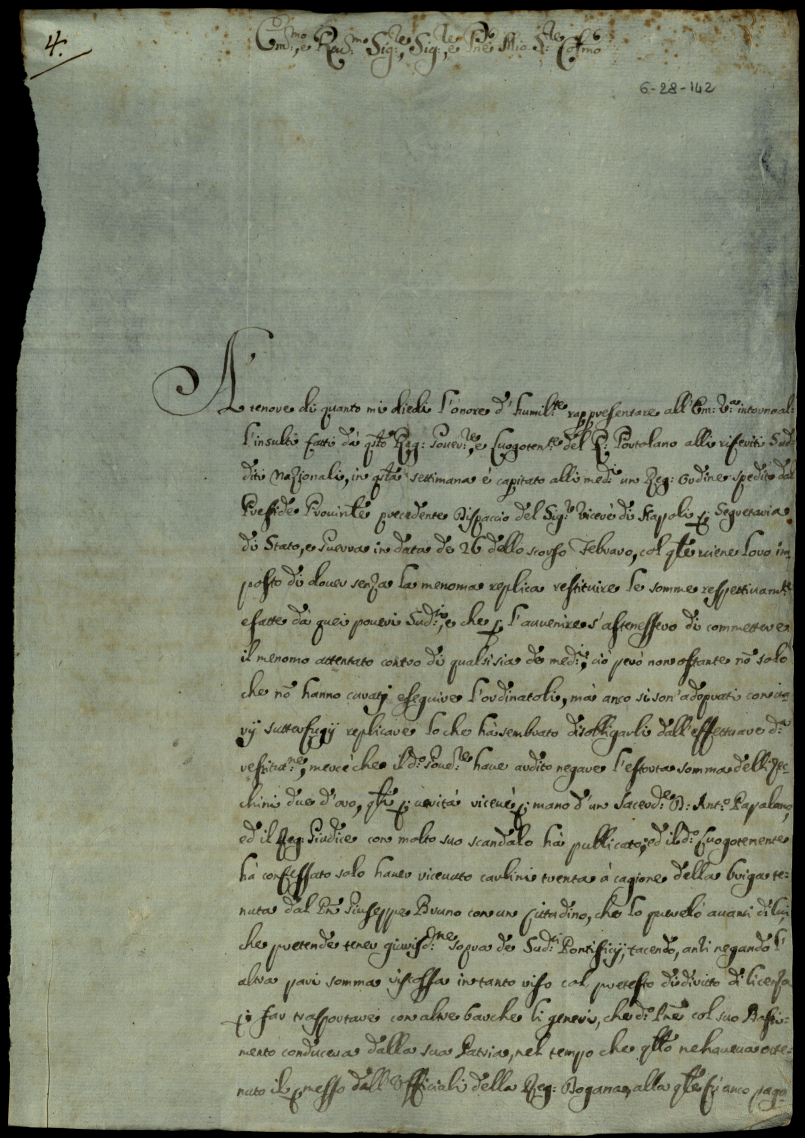 4.
Em:mo, e Rev:mo Sig:re, Sig:re, e Pne Mio
6-28-142
A tenore di quanto mi diedi l'onore d'humil:te rappresentare all'Em: V:a intorno al-
l'insulti fatti da q:sto Reg: Gover:re, e Luogoten:te del R: Portolano alli riferiti Sud-
diti Nazionali, in q:sta settimana è capitato alli med:i un Reg: Ordine spedito dal
Preside Provin:le precedente Dispaccio del Sig:r Vicerè di Napoli p Segretaria
di Stato, e Guerra in data de 26 dello scorso Febraro, col q:le viene loro im-
posto di dover senza la menoma replica restituire le somme respettivam:te
esatte da quei poveri Sud:ti, e che p l'avvenire s'astenessero di commettere
il menomo attentato contro di qualsisia de med:i, ciò però non ostante nõ solo
che nõ hanno curato eseguire l'ordinatoli, mà anco si son' adoprati con va-
rij sutterfugij replicare lo che hà sembrato disobligarli dall'effettuare d:a
restituz:ne, mercè che il d:o Gover:re have ardito negare l'estorta somma delli Zec-
chini due d'oro, q:li p verità ricevè p mano d'un Sacerd:e D: Ant:o Papalano,
ed il Reg: Giudice con molto suo scandalo hà publicato, ed il d:o Luogotenente
hà confessato solo haver ricevuto carlini trenta à cagione della briga te-
nuta dal Pne Giuseppe Bruno con un Cittadino, che lo querelò avanti di lui,
che pretende tener giurisd:ne sopra de Sud:ti Pontificij, tacendo, anzi negando l'
altra pari somma riscossa intanto col pretesto di diritto di licenza
p far trasportare con altre barche li generi, che d:o Pne col suo Basti-
mento conduceva dalla sua Patria, nel tempo che q:llo ne haveva otte-
nuto il pmesso dall'Officiali della Reg: Dogana, alla q:le fù anco pago-